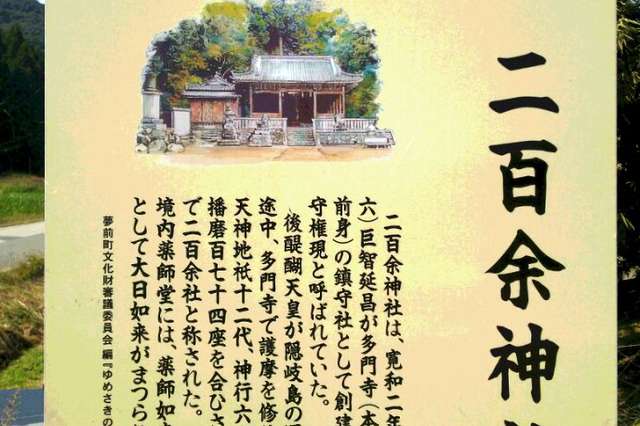 二百余神社
二百余神社は、寛和二年
六）巨智延昌が多門寺（本
前身）の鎮守社として創建
守権現と呼ばれていた。
後醍醐天皇が隠岐島の
途中、多門寺で護摩を修
天神地祇十二代、神行六
播磨百七十四座を合むさ
で二百余社と称された。
境内薬師堂には、薬師如
として大日如来がまつら
夢前町文化財審議委員会 編『ゆめさきの